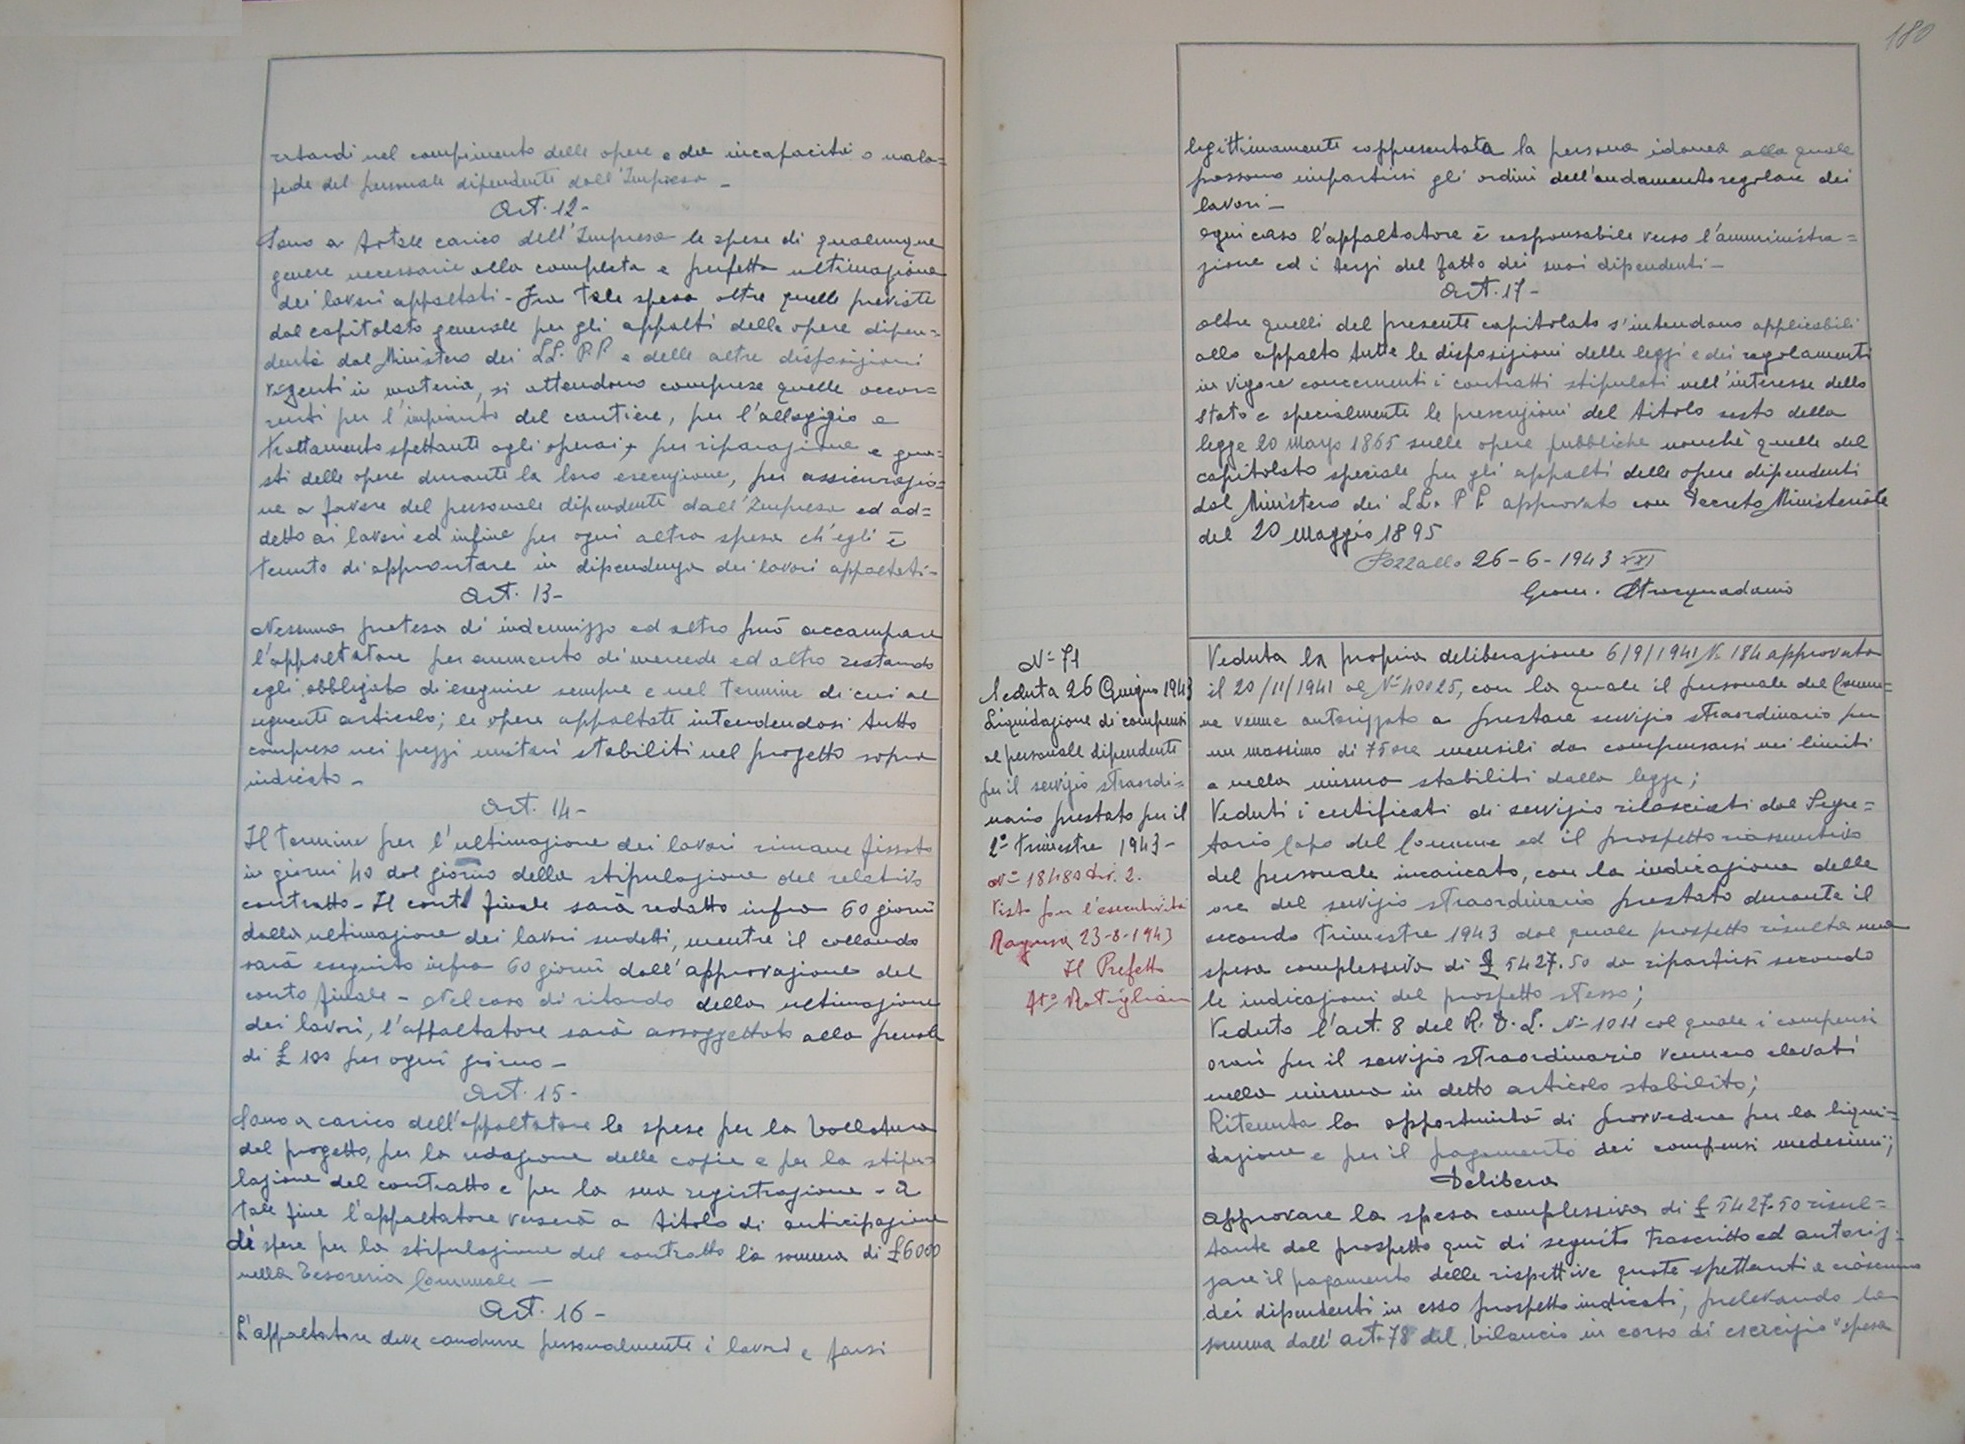 ritardi nel compimento delle opere e da incapacità o mala=
fede del personale dipendente dall'Impresa –
Art. 12 –
Sono a totale carico dell'Impresa le spese di qualunque
genere necessarie alla completa e perfetta ultimazione
dei lavori appaltati – Fra tale spesa oltre quelle previste
dal capitolato generale per gli appalti delle opere dipen=
dente dal Ministero dei LL. P.P e delle altre disposizioni
vigenti in materia, si attendono comprese quelle occor=
renti per l'impianto del cantiere, per l'alloggio e
trattamento spettante agli operai, per riparazione e gua=
sti delle opere durante la loro esecuzione, per assicurazio=
ne a favore del personale dipendente dall'Impresa ed ad=
detto ai lavori ed infine per ogni altra spesa ch'egli è
tenuto di approntare in dipendenza dei lavori appaltati –
Art. 13 –
Nessuna pretesa di indennizzo ed altro può accampare
l'appaltatore per aumento di mercede ed altro restando
egli obbligato di eseguire sempre e nel termine di cui al
seguente articolo; le opere appaltate intendendosi tutto
compreso nei prezzi unitari stabiliti nel progetto sopra
indicato –
Art. 14 –
Il termine per l'ultimazione dei lavori rimane fissato
in giorni 40 dal giorno della stipulazione del relativo
contratto – Il conto finale sarà redatto infra 60 giorni
dalla ultimazione dei lavori sudetti, mentre il collaudo
sarà eseguito infra 60 giorni dall'approvazione del
conto finale – Nel caso di ritardo della ultimazione
dei lavori, l'appaltatore sarà assoggettato alla penale
di £ 100 per ogni giorno –
Art. 15 –
Sono a carico dell'appaltatore le spese per la bollatura
del progetto, per la redazione delle copie e per la stipu=
lazione del contratto e per la sua registrazione – A
tale fine l'appaltatore verserà a titolo di anticipazione
di spese per la stipulazione del contratto la somma di £6000
nella Tesoreria Comunale –
Art. 16 –
L'appaltatore deve condurre personalmente i lavori e farsi
180
legittimamente rappresentata la persona idonea alla quale
possono impartirsi gli ordini dell'andamento regolare dei
lavori –
ogni caso l'appaltatore è responsabile verso l'amministra=
zione ed i terzi del fatto dei suoi dipendenti –
Art. 17 –
oltre quelli del presente capitolato s'intendono applicabili
allo appalto tutte le disposizioni delle leggi e dei regolamenti
in vigore concernenti i contratti stipulati nell'interesse dello
Stato e specialmente le prescrizioni del titolo sesto della
legge 20 Marzo 1865 sulle opere pubbliche nonchè quelle del
capitolato speciale per gli appalti delle opere dipendenti
dal Ministero dei LL. P P. approvato con Decreto Ministeriale
del 20 Maggio 1895
Pozzallo 26-6-1943 XXI
Geom. Stracquadanio
N° 71
Seduta 26 Giugno 1943
Liquidazione di compensi
al personale dipendente
per il servizio straordi=
nario prestato per il
2° trimestre 1943 –
N° 18480 Div. 2.
Visto per l'esecutività
Ragusa 23-8-1943
Il Prefetto
Veduta la propria deliberazione 6/9/1941 N. 184 approvata
il 20/11/1941 al N° 40025, con la quale il personale del Comu=
ne venne autorizzato a prestare servizio straordinario per
un massimo di 75 ore mensili da compensarsi nei limiti
e nella misura stabiliti dalla legge;
Veduti i certificati di servizio rilasciati dal Segre=
tario Capo del Comune ed il prospetto riassuntivo
del personale incaricato, con la indicazione delle
ore del servizio straordinario prestato durante il
secondo trimestre 1943 dal quale prospetto risulta una
spesa complessiva di £ 5427.50 da ripartirsi secondo
le indicazioni del prospetto stesso;
Veduto l'art. 8 del R. D. L. N° 1011 col quale i compensi
orari per il servizio straordinario vennero elevati
nella misura in detto articolo stabilito;
Ritenuta la opportunità di provvedere per la liqui=
dazione e per il pagamento dei compensi medesimi;
Delibera
approvare la spesa complessiva di £ 5427.50 risul=
tante dal prospetto quì di seguito trascritto ed autoriz=
zare il pagamento delle rispettive quote spettanti a ciascuno
dei dipendenti in esso prospetto indicati, prelevando la
somma dall'art. 78 del bilancio in corso di esercizio spesa